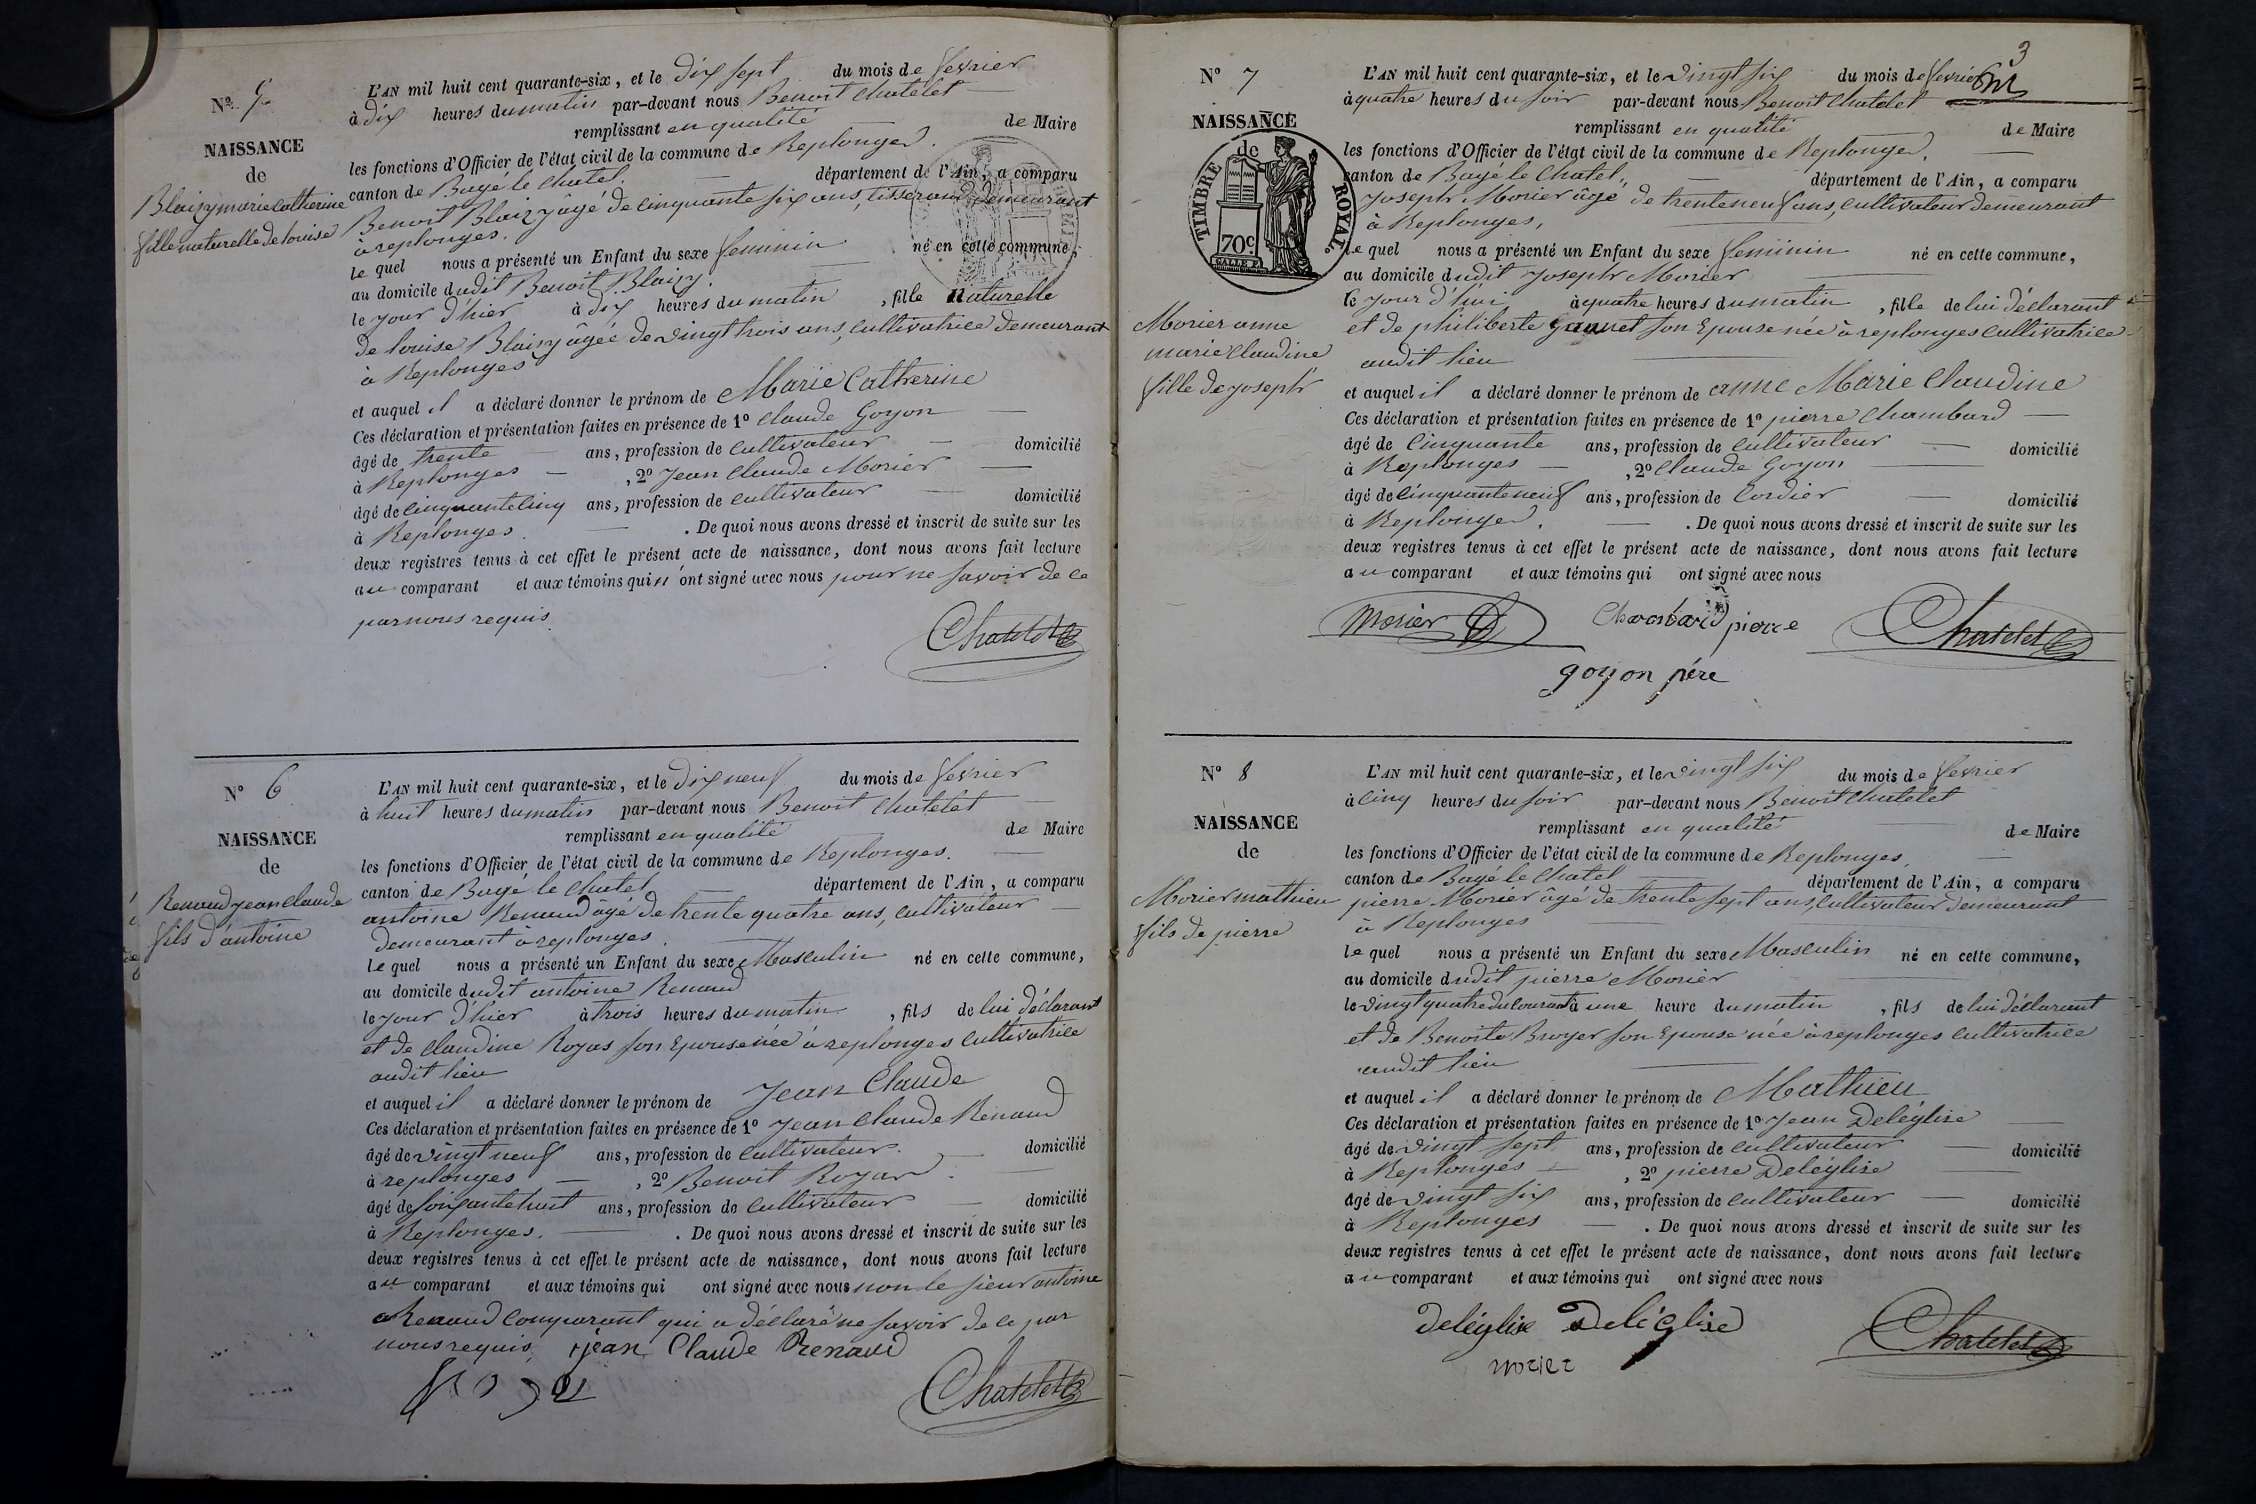 Nº 5
NAISSANCE
de
Blaizy marie Catherine
fille naturelle de louise
L'AN mil huit cent quarante-six, et le dix sept du mois de fevrier
à dix heures du matin par-devant nous Benoit Chatelet
remplissant en qualité de Maire
les fonctions d'Officier de l'état civil de la commune de Replonges.
canton de Bagé le Chatel, département de l'Ain, a comparu
Benoit Blaizy âgé de cinquante six ans, tisserand demeurant
à replonges.
le quel nous a présenté un Enfant du sexe feminin né en cette commune,
au domicile dudit Benoit Blaizy.
le jour d'hier à dix heures du matin, fille naturelle
de louise Blaizy âgée de vingt trois ans, cultivatrice demeurant
à Replonges
et auquel il a déclaré donner le prénom de Marie Catherine
Ces déclaration et présentation faites en présence de 1º Claude Goyon
âgé de trente ans, profession de cultivateur domicilié
à Replonges, 2º Jean Claude Morier
âgé de cinquante cinq ans, profession de cultivateur domicilié
à Replonges. De quoi nous avons dressé et inscrit de suite sur les
deux registres tenus à cet effet le présent acte de naissance, dont nous avons fait lecture
au comparant et aux témoins qui n'ont signé avec nous pour ne savoir de ce
par nous requis.
Chatelet
Nº 6
NAISSANCE
de
Renaud jean claude
fils d'antoine
L'AN mil huit cent quarante-six, et le dix neuf du mois de fevrier
à huit heures du matin par-devant nous Benoit Chatelet
remplissant en qualité de Maire
les fonctions d'Officier de l'état civil de la commune de Replonges.
canton de Bagé le Chatel département de l'Ain, a comparu
antoine Renaud âgé de trente quatre ans, cultivateur
demeurant à replonges.
le quel nous a présenté un Enfant du sexe Masculin né en cette commune,
au domicile dudit antoine Renaud
le jour d'hier à trois heures du matin, fils de lui déclarant
et de claudine Royas son Epouse née à replonges cultivatrice
audit lieu
et auquel il a déclaré donner le prénom de Jean Claude
Ces déclaration et présentation faites en présence de 1º Jean Claude Renaud
âgé de vingt neuf ans, profession de cultivateur. domicilié
à replonges, 2º Benoit Royar
âgé de soixante huit ans, profession de cultivateur domicilié
à Replonges. De quoi nous avons dressé et inscrit de suite sur les
deux registres tenus à cet effet le présent acte de naissance, dont nous avons fait lecture
au comparant et aux témoins qui ont signé avec nous non le sieur antoine
Renaud comparant qui a déclaré ne savoir de ce par
nous requis. jean Claude Renaud
Chatelet
3
Nº 7
NAISSANCE
de
TIMBRE ROYAL
70c
Morier anne
marie claudine
fille de joseph
L'AN mil huit cent quarante-six, et le vingt six du mois de fevrier
à quatre heures du soir par-devant nous Benoit Chatelet
remplissant en qualité de Maire
les fonctions d'Officier de l'état civil de la commune de Replonges.
canton de Bagé le Chatel, département de l'Ain, a comparu
Joseph Morier âgé de trente neuf ans, cultivateur demeurant
à Replonges,
le quel nous a présenté un Enfant du sexe feminin né en cette commune,
au domicile dudit Joseph Morier
le jour d'hui à quatre heures du matin, fille de lui déclarant
et de philiberte son Epouse née à replonges cultivatrice
audit lieu
et auquel il a déclaré donner le prénom de anne Marie Claudine
Ces déclaration et présentation faites en présence de 1º pierre Chambard
âgé de Cinquante ans, profession de cultivateur domicilié
à Replonges, 2º Claude Goyon
âgé de cinquante neuf ans, profession de Cordier domicilié
à Replonges. De quoi nous avons dressé et inscrit de suite sur les
deux registres tenus à cet effet le présent acte de naissance, dont nous avons fait lecture
au comparant et aux témoins qui ont signé avec nous
morier Chambard pierre Chatelet
goyon père
Nº 8
NAISSANCE
de
Morier mathieu
fils de pierre
L'AN mil huit cent quarante-six, et le vingt six du mois de fevrier
à cinq heures du soir par-devant nous Benoit Chatelet
remplissant en qualité de Maire
les fonctions d'Officier de l'état civil de la commune de Replonges.
canton de Bagé le Chatel département de l'Ain, a comparu
pierre Morier âgé de trente sept ans, cultivateur demeurant
à Replonges
le quel nous a présenté un Enfant du sexe Masculin né en cette commune,
au domicile dudit pierre Morier
le vingt quatre du courant à une heure du matin, fils de lui déclarant
et de Benoite Broyer son Epouse née à replonges cultivatrice
audit lieu
et auquel il a déclaré donner le prénom de Mathieu
Ces déclaration et présentation faites en présence de 1º Jean Deléglise
âgé de vingt sept ans, profession de cultivateur domicilié
à Replonges, 2º pierre Deléglise
âgé de vingt six ans, profession de cultivateur domicilié
à Replonges. De quoi nous avons dressé et inscrit de suite sur les
deux registres tenus à cet effet le présent acte de naissance, dont nous avons fait lecture
au comparant et aux témoins qui ont signé avec nous
deléglise Deléglise Chatelet
morier